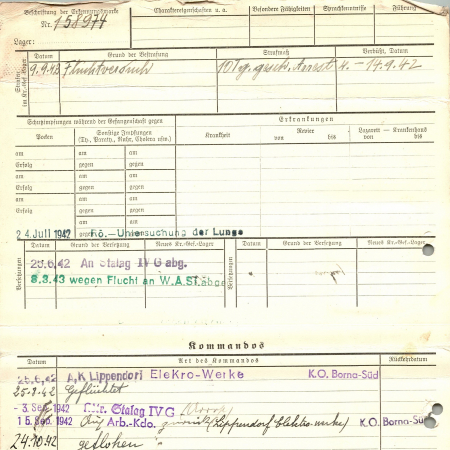 Beschriftung der Erkennungsmarke
Nr. 158974
Charaktereigenschaften u. a.
Besondere Fähigkeiten
Sprachkenntnisse
Führung
Lager:
Strafen im Kr.-Gef.-Lager
Datum
Grund der Bestrafung
Strafmaß
Verbüßt, Datum
9.9.42
Fluchtversuch
10 Tg. gesch. Arrest
– 19.9.42
Schutzimpfungen während der Gefangenschaft gegen
Erkrankungen
Pocken
Sonstige Impfungen
(Ty., Paraty., Ruhr, Cholera usw.)
Krankheit
Revier
von bis
Lazarett – Krankenhaus
von bis
am am am
Erfolg gegen gegen
am am am
Erfolg gegen gegen
am am am
Erfolg gegen gegen
am am
gegen gegen
am am
24. Juli 1942 Rö.-Untersuchung der Lunge
Versetzungen
Datum
Grund der Versetzung
Neues Kr.-Gef.-Lager
Versetzungen
Datum
Grund der Versetzung
Neues Kr.-Gef.-Lager
25.6.42 An Stalag IV G abg.
8.3.43 wegen Flucht an W.A.St. abge
Kommandos
Datum
Art des Kommandos
Rückkehrdatum
26.6.42 A.K Lippendorf EleKro-Werke K.O. Borna-Süd
25.7.42 Geflüchtet
- 3. Sep. 1942 Stalag IV G
15. Sep. 1942 Auf Arb.-Kdo. zurück (Lippendorf Elektro-werke) K.O. Borna-Süd
24.10.42 geflohen "